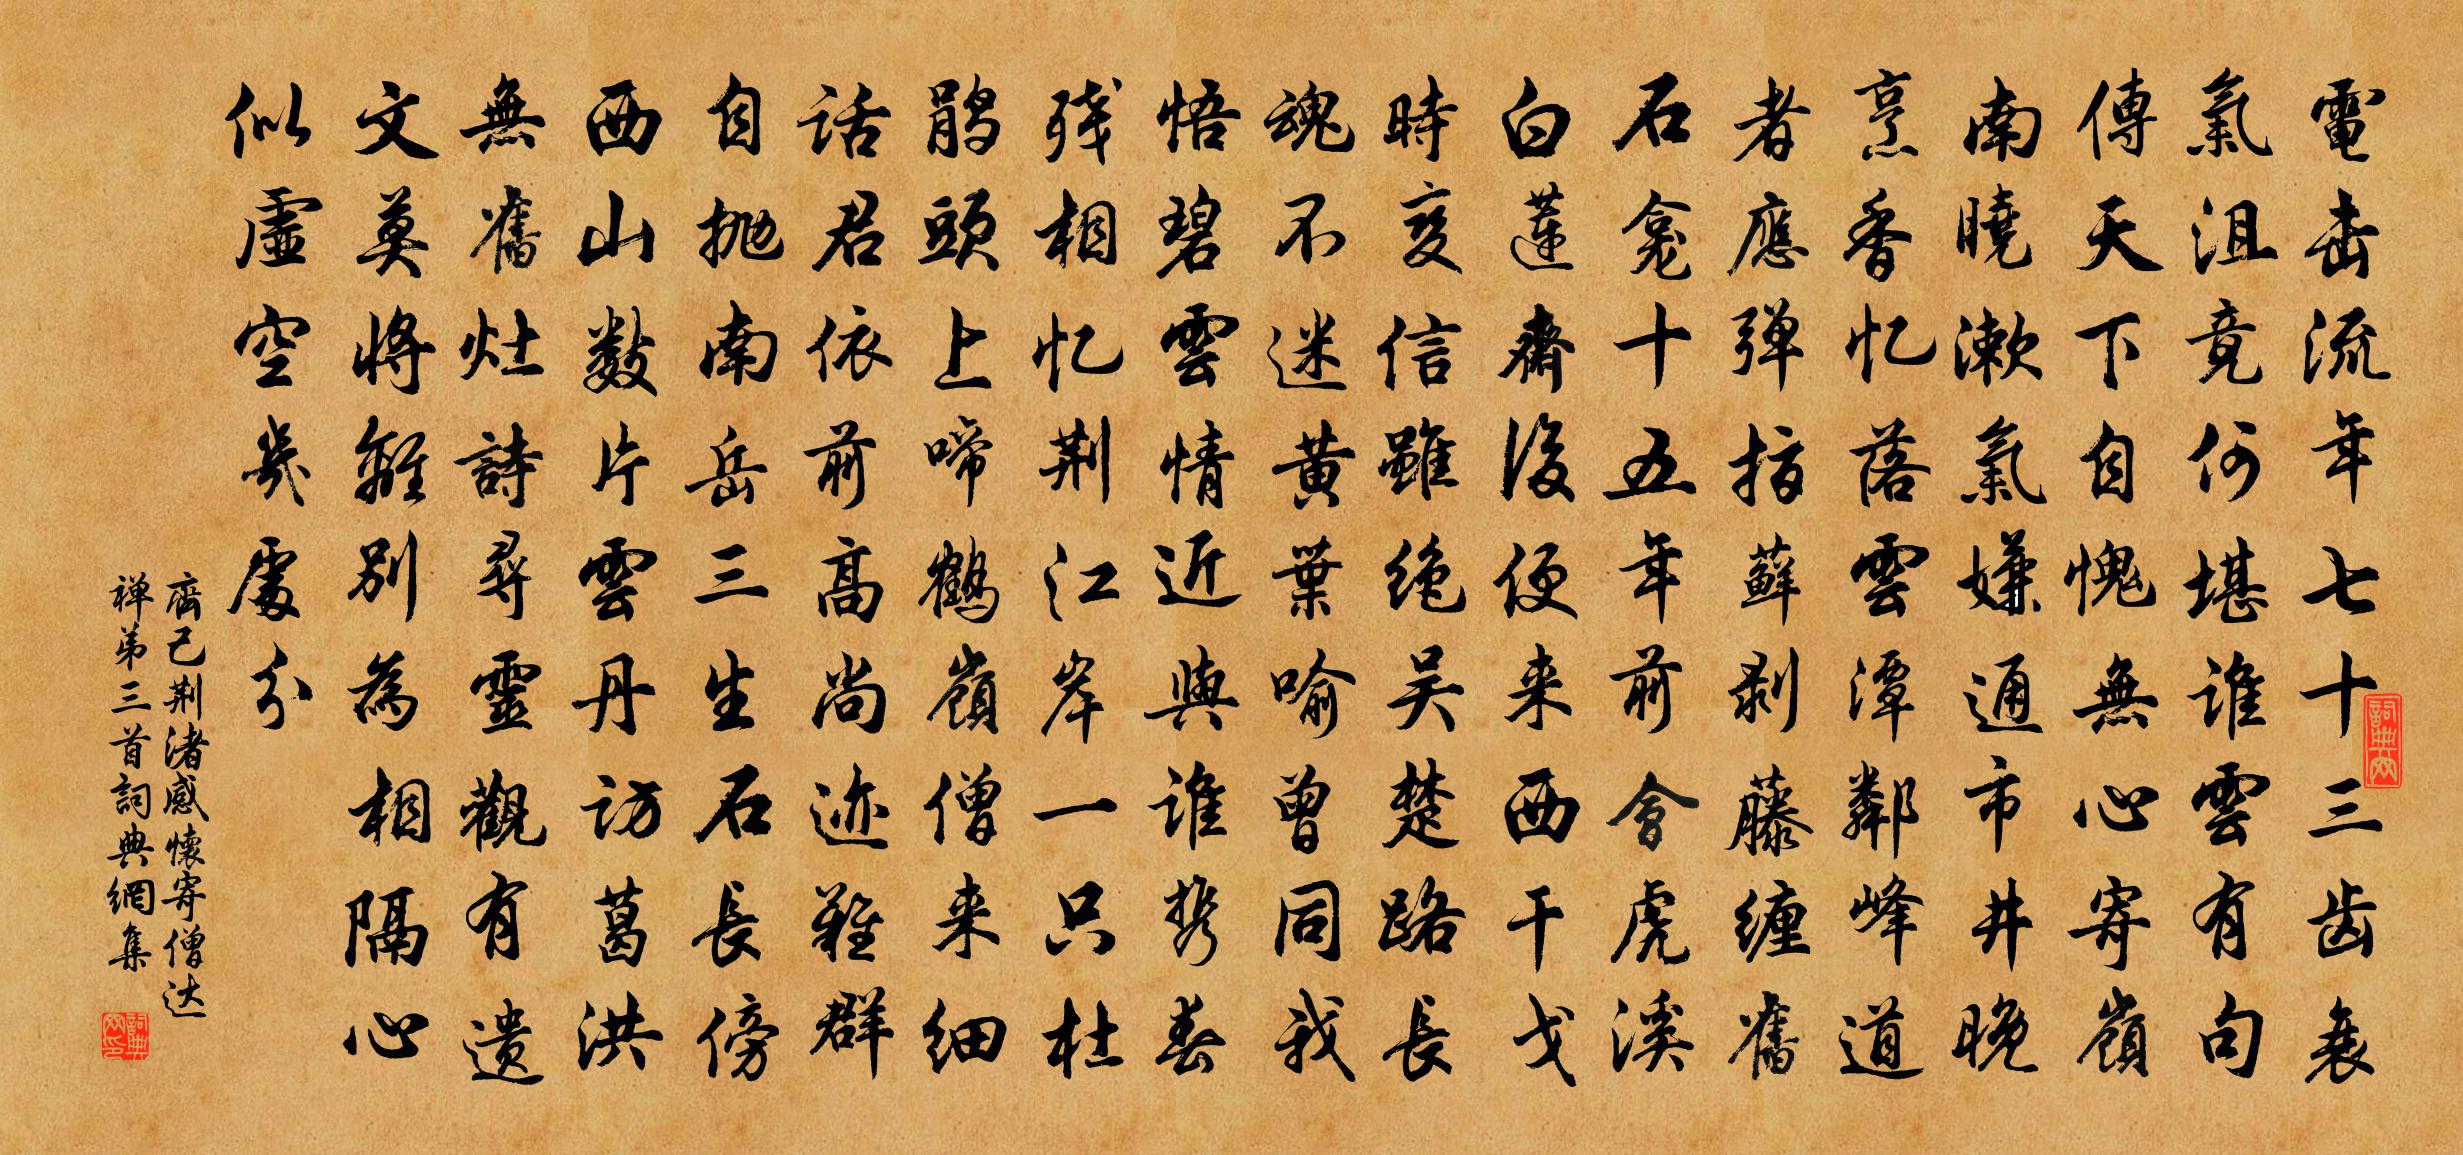 電击流年七十三齿衰
氣沮竟何堪谁雲有句
傳天下自愧無心寄嶺
南曉漱氣嫌通市井晚
烹香忆落雲潭鄰峰道
者應弹指藓剥藤缠舊
石龛十五年前會虎溪
白莲齋後便来西干戈
時变信雖绝吴楚路長
魂不迷黄葉喻曾同我
悟碧雲情近與谁携春
残相忆荆江岸一只杜
鹃頭上啼鶴嶺僧来细
话君依前高尚迹難群
自抛南岳三生石長傍
西山数片雲丹访葛洪
無舊灶詩尋靈觀有遗
文莫將離别為相隔心
似虚空幾處分
齊己荆渚感懷寄僧达
禅弟三首詞典網集
詞典网
詞典网印